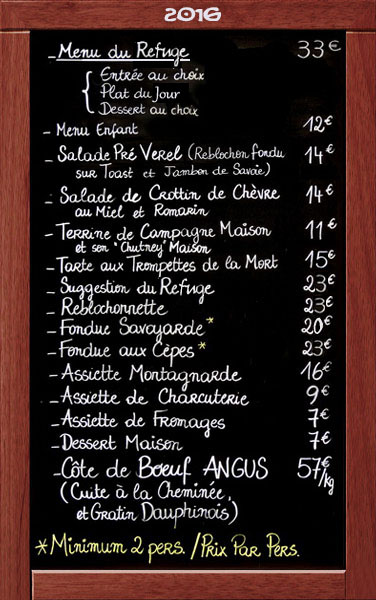 2016
- Menu du Refuge 33€
Entrée au choix
Plat du Jour
Dessert au choix
- Menu Enfant 12€
- Salade Pré Verel (Reblochon fondu 14€
sur Toast et Jambon de Savoie)
- Salade de Crottin de Chèvre 14€
au Miel et Romarin
- Terrine de Campagne Maison 11€
et son "Chutney" Maison
- Tarte aux Trompettes de la Mort 15€
- Suggestion du Refuge 23€
- Reblochonnette 23€
- Fondue Savoyarde* 20€
- Fondue aux Cèpes* 23€
- Assiette Montagnarde 16€
- Assiette de Charcuterie 9€
- Assiette de Fromages 7€
- Dessert Maison 7€
- Côte de Boeuf ANGUS 57€/kg
(Cuite à la Cheminée,
et Gratin Dauphinois)
*Minimum 2 pers. /Prix Par Pers.